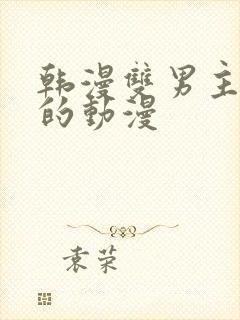 韩漫雙男主
的動漫
袁荣